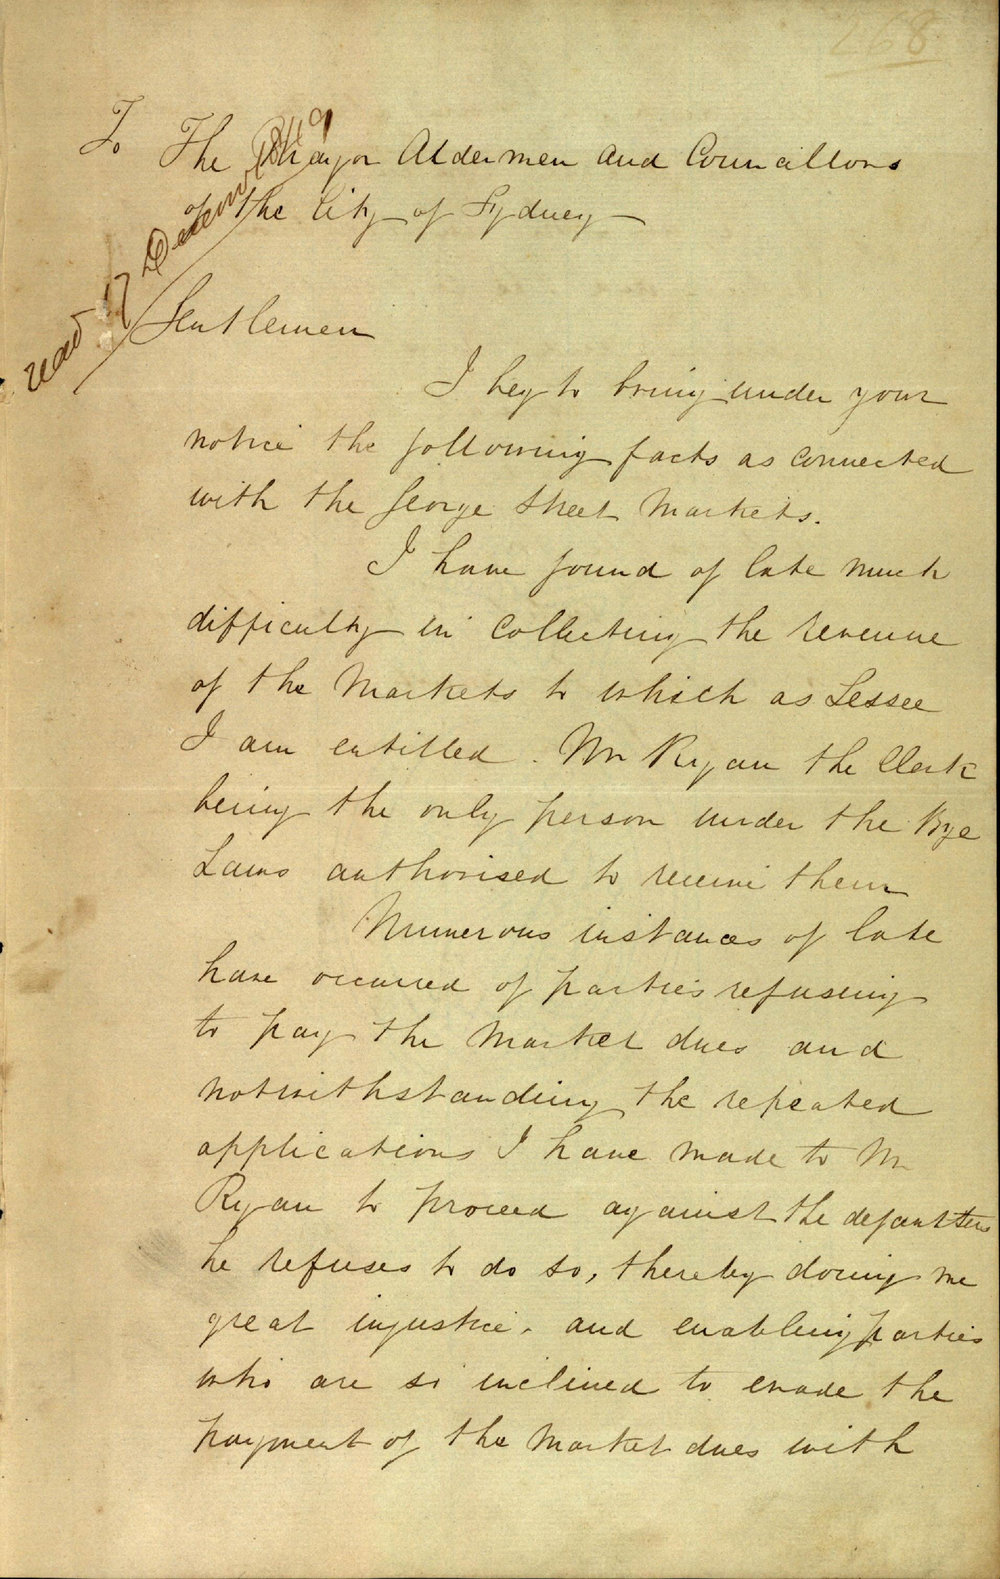 268
To The Mayor Aldermen and Councillors
of the City of Sydney
read 17 December 1849
Gentlemen
I beg to bring under your
notice the following facts as connected
with the George Street Markets.
I have found of late much
difficulty in Collecting the revenue
of the Markets to which as Lessee
I am entitled. Mr Ryan the Clerk
being the only person under the Bye
Laws authorised to receive them
Numerous instances of late
have occurred of parties refusing
to pay the Market dues and
notwithstanding the repeated
applications I have made to Mr
Ryan to proceed against the defaulters
he refuses to do so, thereby doing me
great injustice. and enabling parties
who are so inclined to evade the
payment of the Market dues with